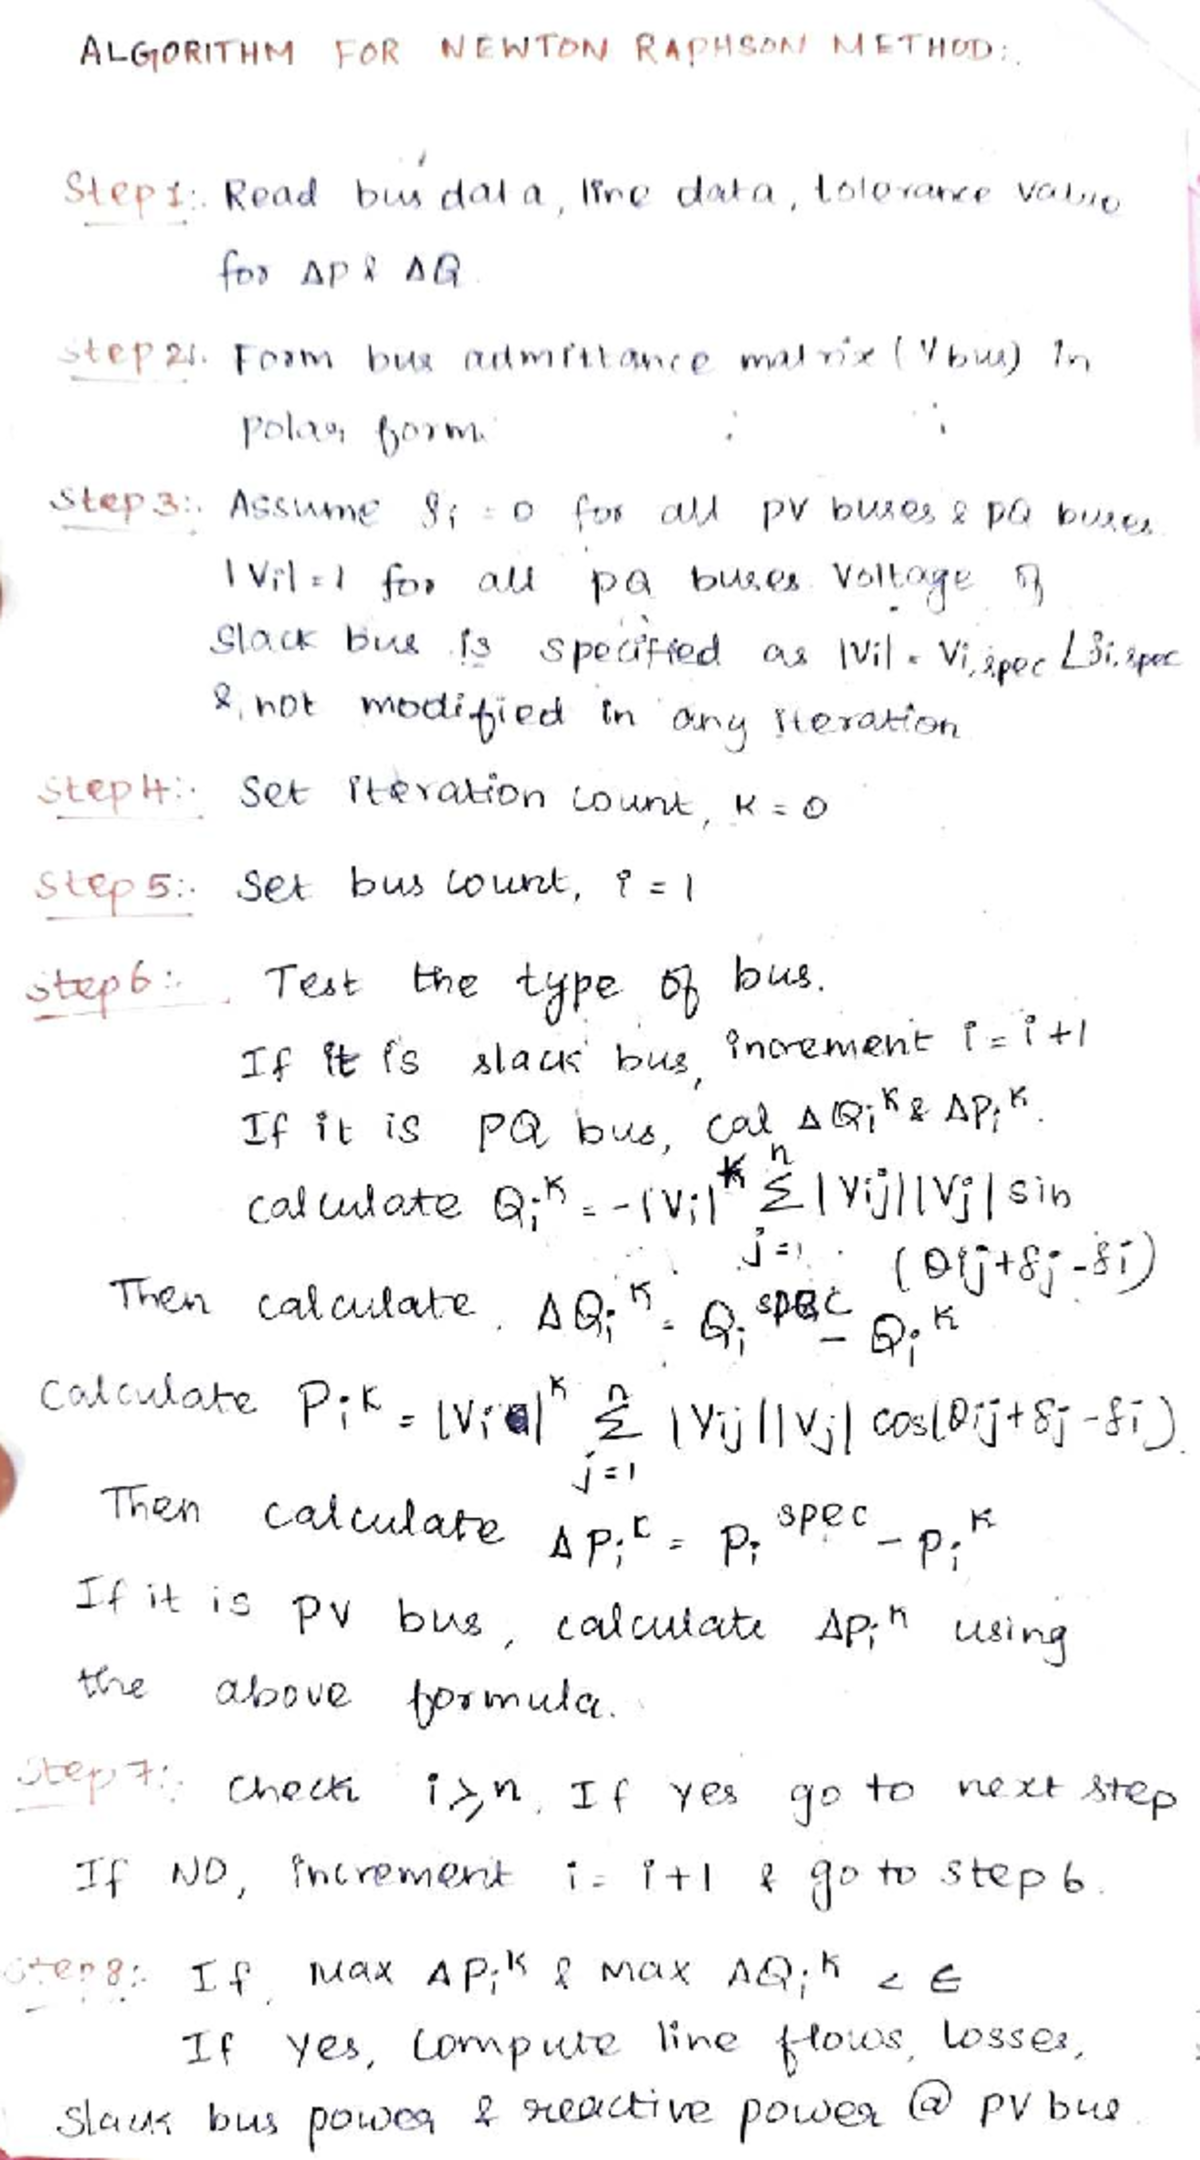 ALGORITHM FOR NEWTON RAPHSON METHOD:.
Step 1:. Read bus data, line data, tolerance value
for ΔP & ΔQ
Step 2:. Form bus admittance matrix (Ybus) in
polar form.
Step 3:. Assume δi = 0 for all PV buses & PQ buses
|Vi| = 1 for all PQ buses. Voltage of
slack bus is specified as |Vi| = Vi,spec ∠δi,spec
& not modified in any iteration
Step 4:. Set iteration count, K = 0
Step 5:. Set bus count, i = 1
Step 6:. Test the type of bus.
If it is slack bus, increment i = i+1
If it is PQ bus, cal ΔQi^K & ΔPi^K.
calculate Qi^K = -|Vi|^K n Σ j=1 |Yij||Vj| sin
(θij+δj-δi)
Then calculate ΔQi^K = Qi^spec - Qi^K
Calculate Pi^K = |Vi|^K n Σ j=1 |Yij||Vj| cos(θij+δj-δi).
Then calculate ΔPi^K = Pi^spec - Pi^K
If it is PV bus, calculate ΔPi^K using
the above formula.
Step 7:. Check i ≥ n. If yes go to next step
If NO, increment i = i+1 & go to step 6.
Step 8:. If Max ΔPi^K & Max ΔQi^K < ∈
If yes, compute line flows, losses,
slack bus power & reactive power @ PV bus.